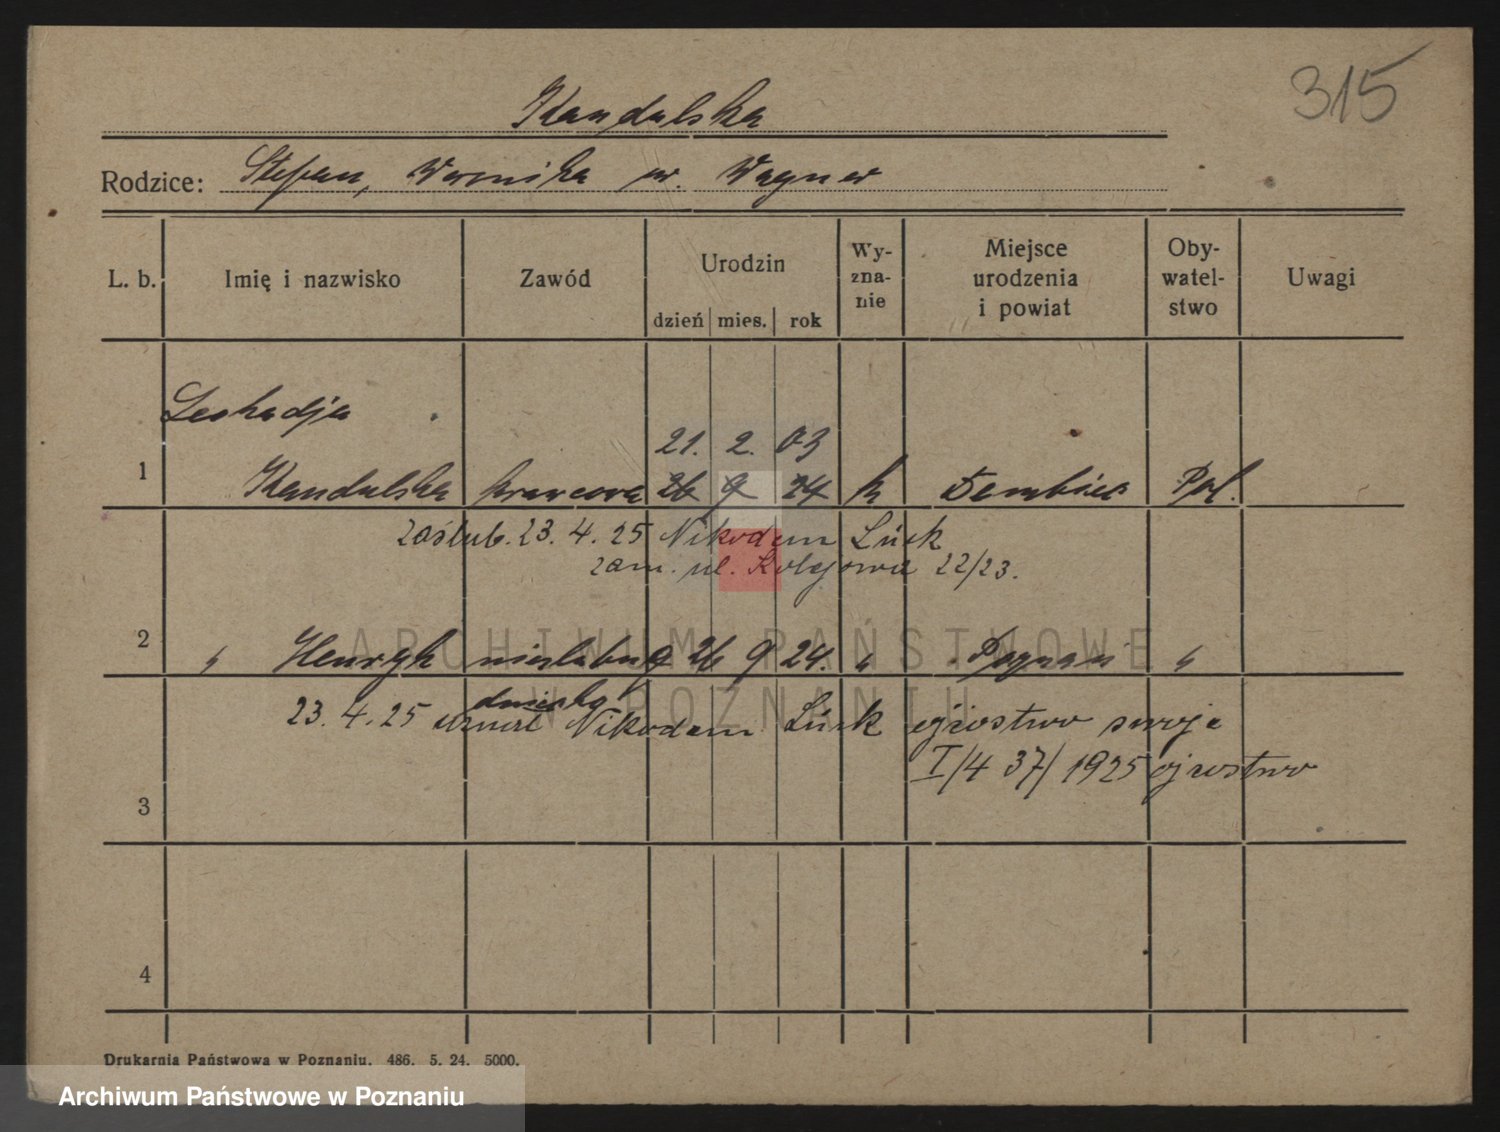 315
Kandulska
Rodzice: Stefan, Weronika ur. Wagner
L. b. Imię i nazwisko Zawód Urodzin dzień mies. rok Wy-zna-nie Miejsce urodzenia i powiat Oby-watel-stwo Uwagi
Leokadja
21. 2. 03
1 Kandulska krawcowa 26 9 24 k Dembiec Pol.
zaślub. 23. 4. 25 Nikodem
zam. ul. Kolejowa 22/23.
2 " Henryk nieślubne 26 9 24. " Poznań "
dziecko
23. 4. 25 uznał Nikodem ojcostwo swoje
I/4 37/1925 ojcostwo
3
4
Drukarnia Państwowa w Poznaniu. 486. 5. 24. 5000.
ARCHIWUM PAŃSTWOWE
W POZNANIU
Archiwum Państwowe w Poznaniu